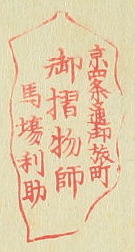 京四条通御旅町
御摺物師
馬場利助